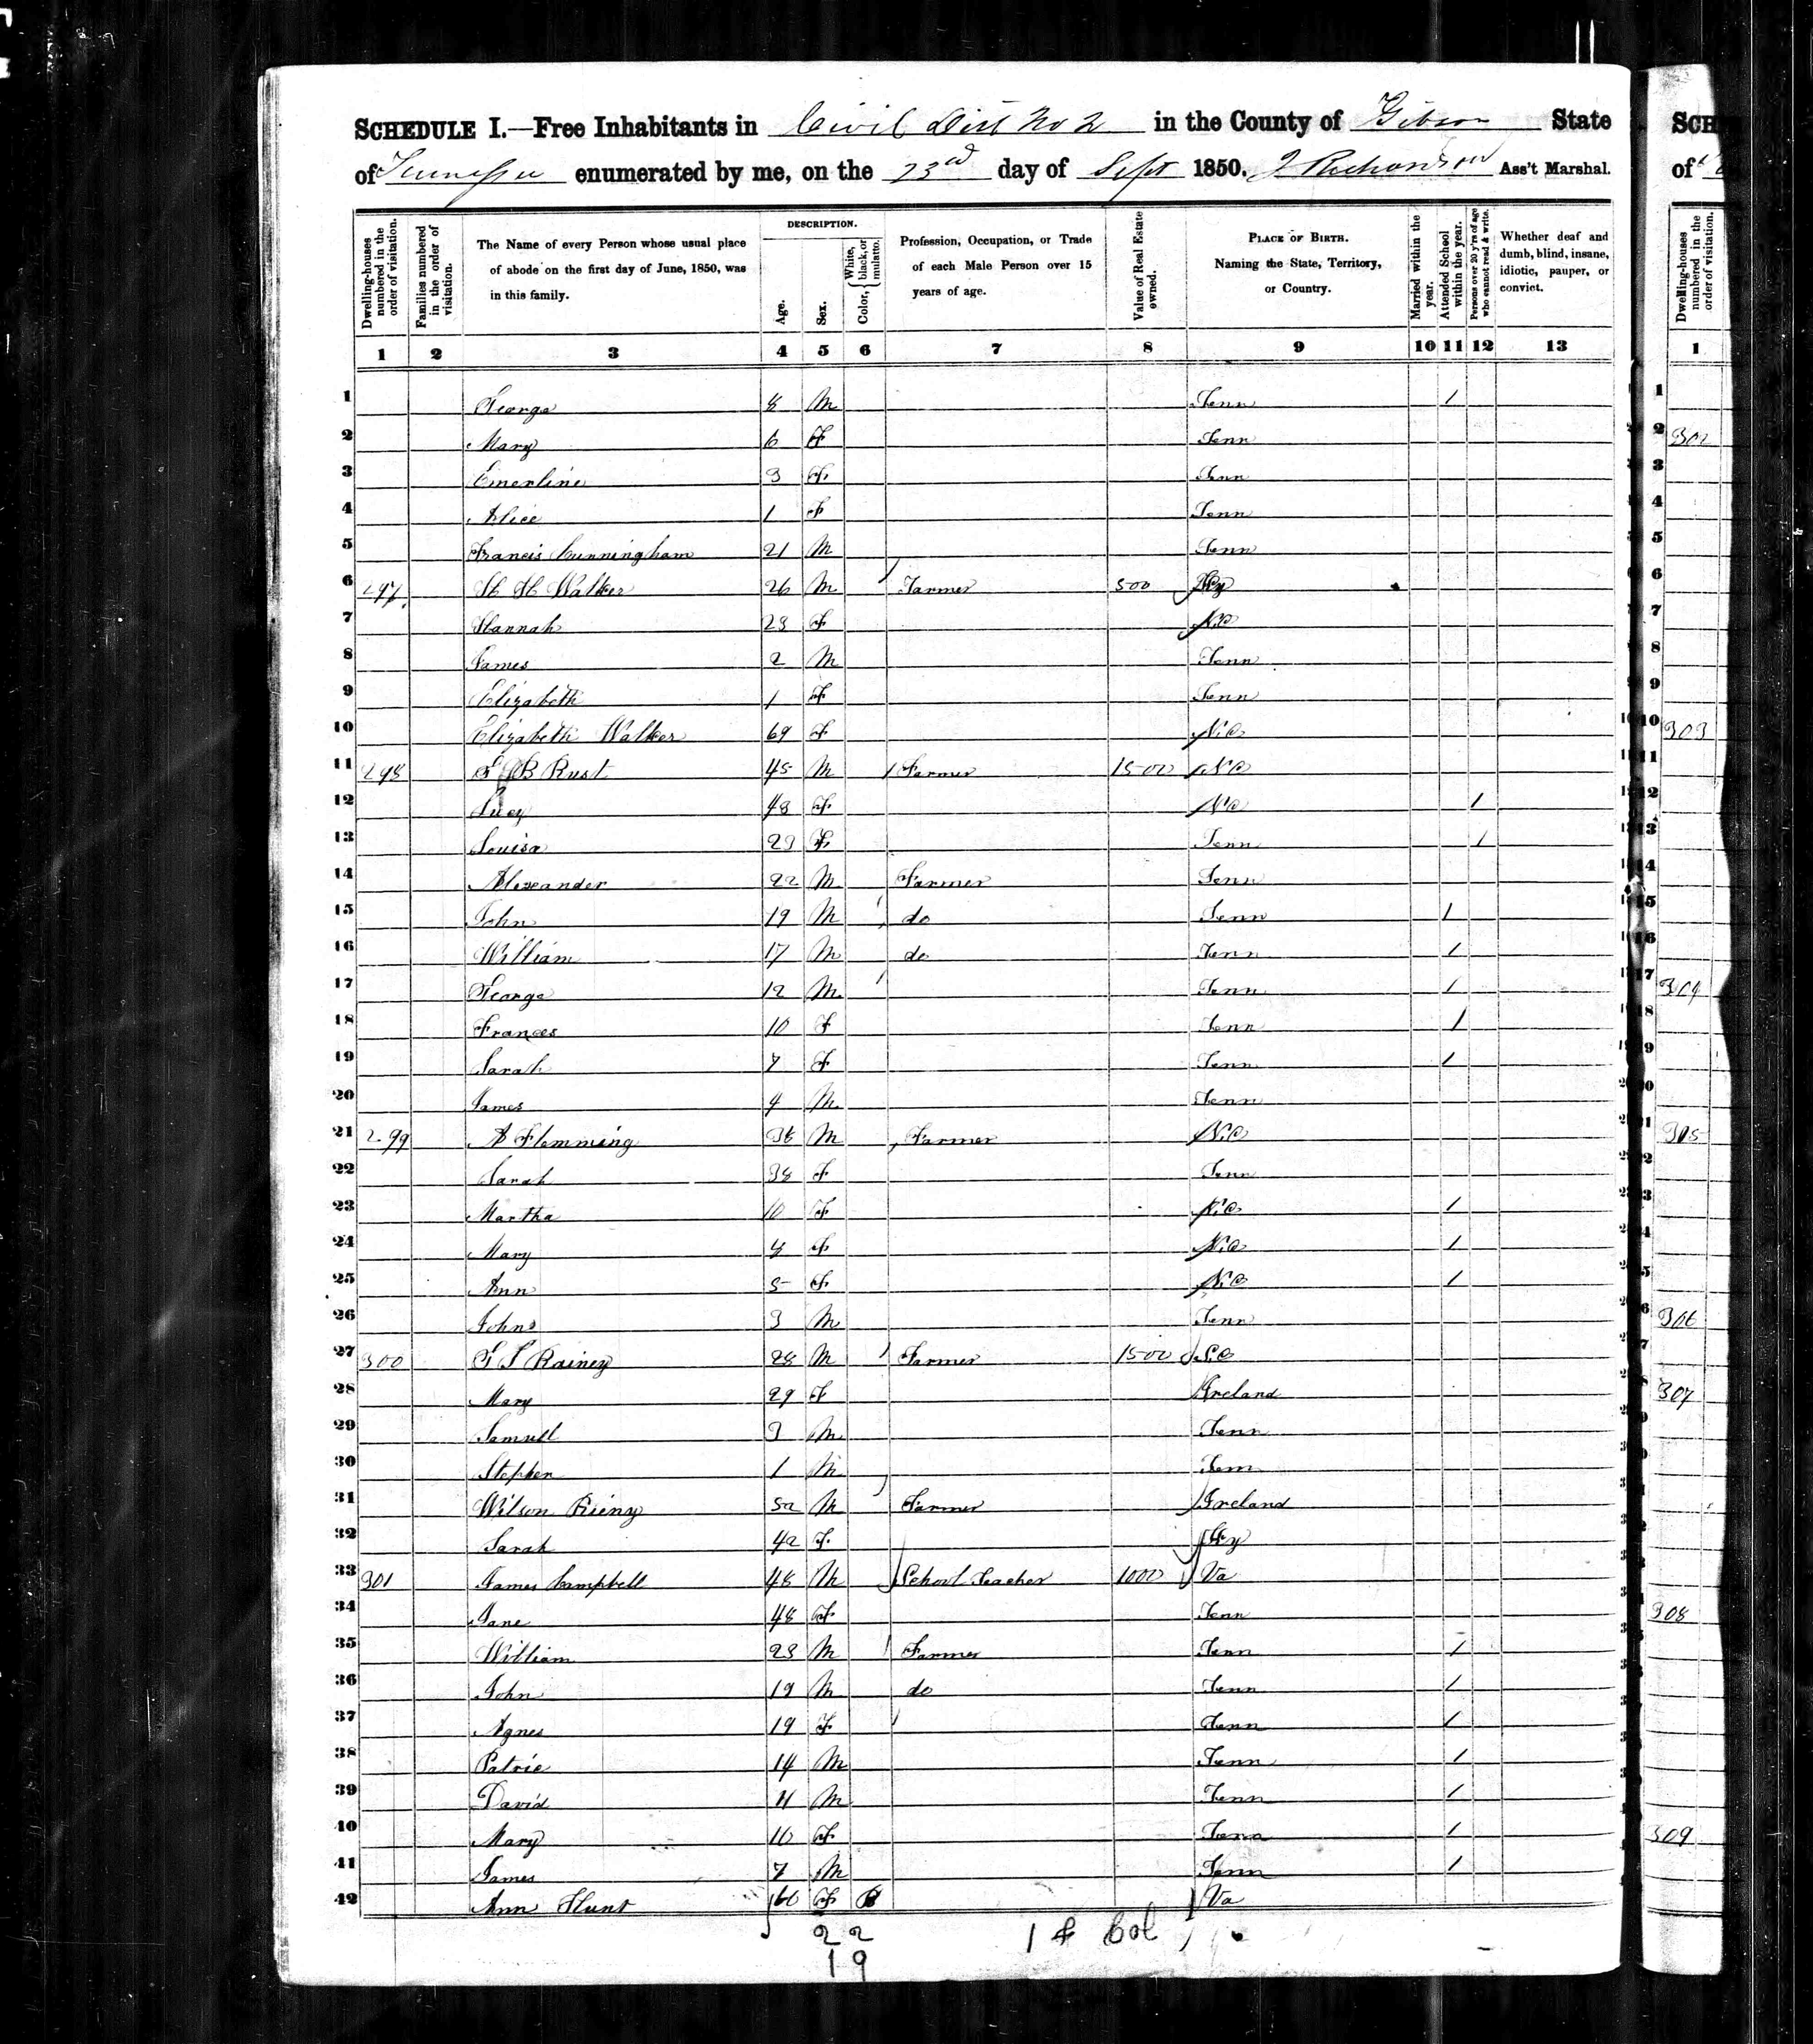 SCHEDULE I.—Free Inhabitants in Civil Dist No 2 in the County of Gibson State
of Tennessee enumerated by me, on the 23rd day of Sept 1850. J Richardson Ass't Marshal.
Dwelling-houses numbered in the order of visitation.
Families numbered in the order of visitation.
The Name of every Person whose usual place of abode on the first day of June, 1850, was in this family.
DESCRIPTION.
Age.
Sex.
Color, White, black, or mulatto.
Profession, Occupation, or Trade of each Male Person over 15 years of age.
Value of Real Estate owned.
PLACE OF BIRTH. Naming the State, Territory, or Country.
Married within the year.
Attended School within the year.
Persons over 20 y'rs of age who cannot read & write.
Whether deaf and dumb, blind, insane, idiotic, pauper, or convict.
1 2 3 4 5 6 7 8 9 10 11 12 13
1 George 8 M Tenn 1
2 Mary 6 F Tenn
3 Emerline 3 F Tenn
4 Alice 1 F Tenn
5 Francis Cunningham 21 M Tenn
6 297 H H Walker 26 M Farmer 500 Ky
7 Hannah 23 F N.C
8 James 2 M Tenn
9 Elizabeth 1 F Tenn
10 Elizabeth Walker 69 F N.C
11 298 B Rust 45 M Farmer 1500 N C
12 Lucy 48 F N C 1
13 Louisa 23 F Tenn 1
14 Alexander 22 M Farmer Tenn
15 John 19 M do Tenn 1
16 William 17 M do Tenn 1
17 George 12 M Tenn 1
18 Frances 10 F Tenn 1
19 Sarah 7 F Tenn 1
20 James 4 M Tenn
21 299 A Flemming 36 M Farmer N.C
22 Sarah 38 F Tenn
23 Martha 10 F N.C 1
24 Mary 8 F N.C 1
25 Ann 5 F N.C 1
26 John 3 M Tenn
27 300 Rainey 28 M Farmer 1500 S.C
28 Mary 29 F Ireland
29 Samuell 3 M Tenn
30 Stephen 1 M Tenn
31 Wilson Rieny 52 M Farmer Ireland
32 Sarah 42 F Ky
33 301 James Campbell 48 M School Teacher 1000 Va
34 Jane 48 F Tenn
35 William 23 M Farmer Tenn 1
36 John 19 M do Tenn 1
37 Agnes 19 F Tenn 1
38 Patric 14 M Tenn 1
39 David 11 M Tenn 1
40 Mary 10 F Tenn 1
41 James 7 M Tenn 1
42 Ann Hunt 60 F B Va
22
19
1 F Col
SCH
of
Dwelling-houses numbered in the order of visitation.
1
302
303
304
305
306
307
308
309